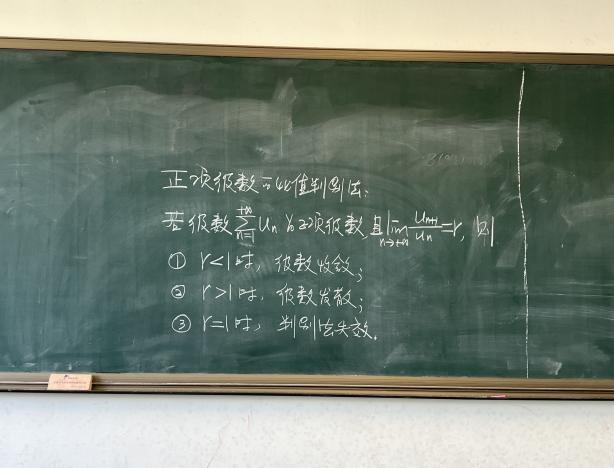 正项级数的比值判别法:
若级数 $\sum_{n=1}^{+\infty} u_n$ 为正项级数,且 $\lim_{n\to+\infty} \frac{u_{n+1}}{u_n}=r$, 则
① r<1时, 级数收敛;
② r>1时, 级数发散;
③ r=1时, 判别法失效.